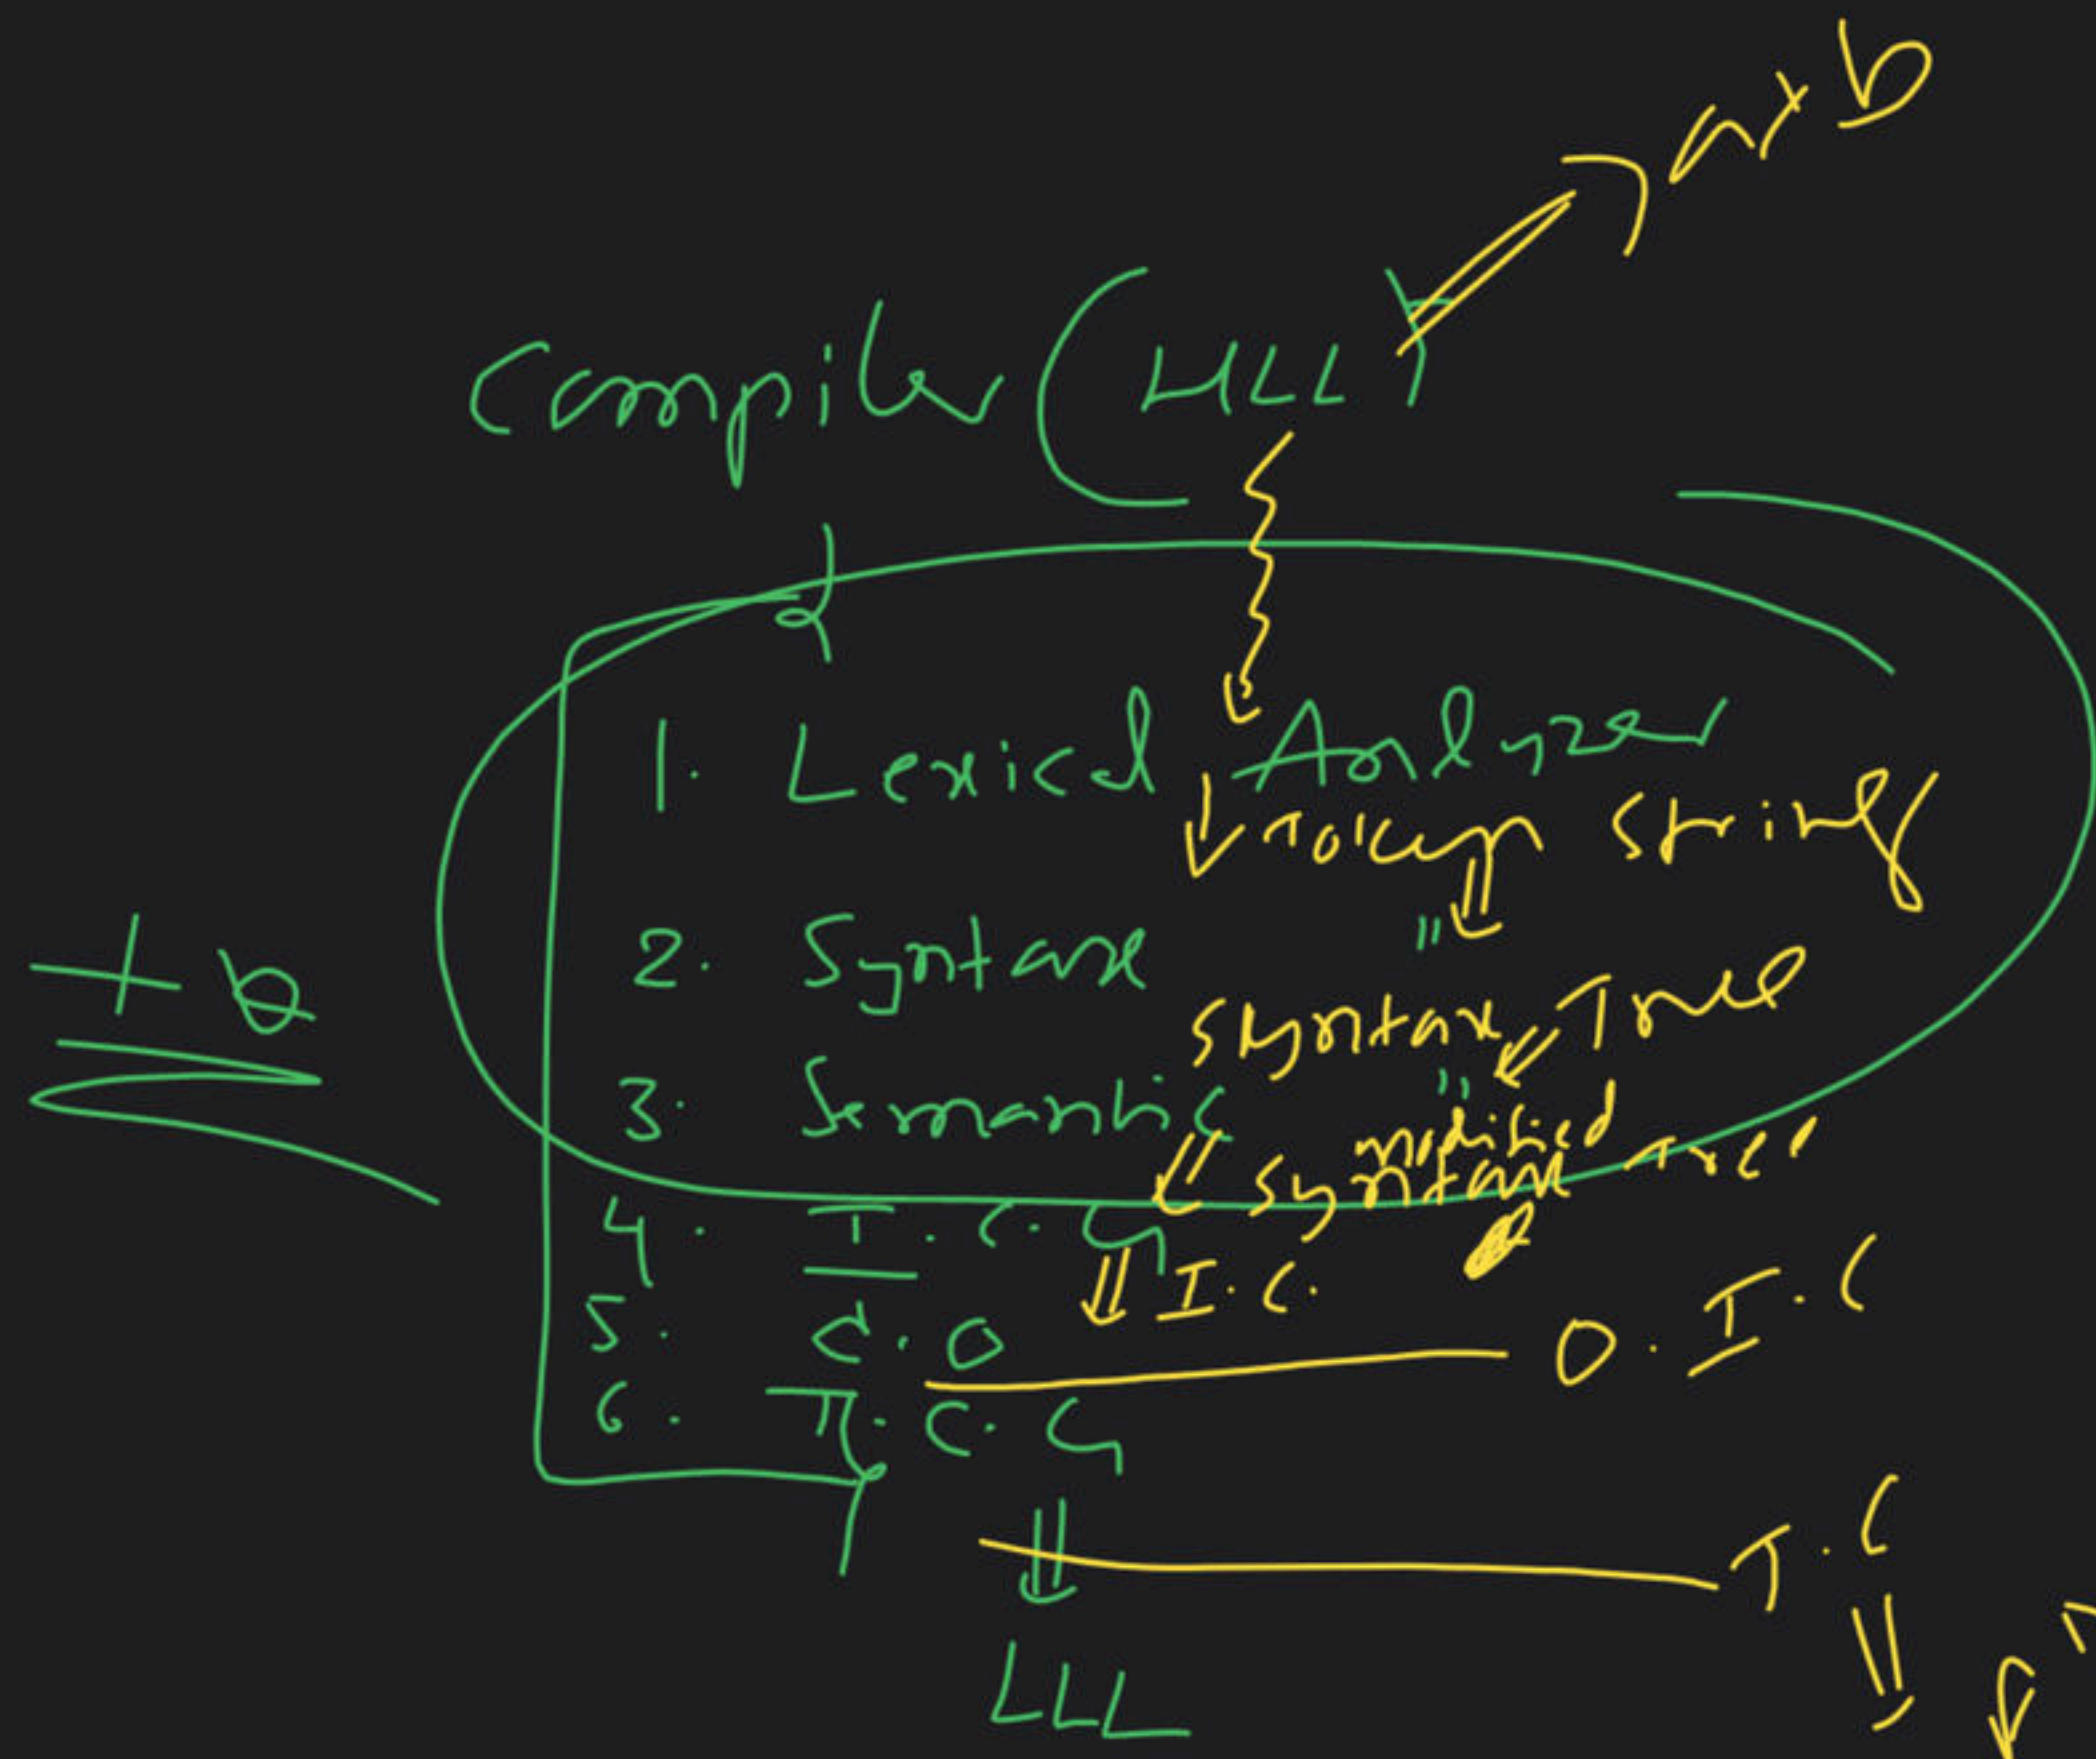 a+b
Compiler (HLL)
{
1. Lexical Analyzer
Token String
2. Syntax "
Syntax Tree
3. Semantic "
modified
Syntax Tree
4. I.C.G
I.C.
5. C.O
O.I.C
6. T.C.G
}
T.C
LLL